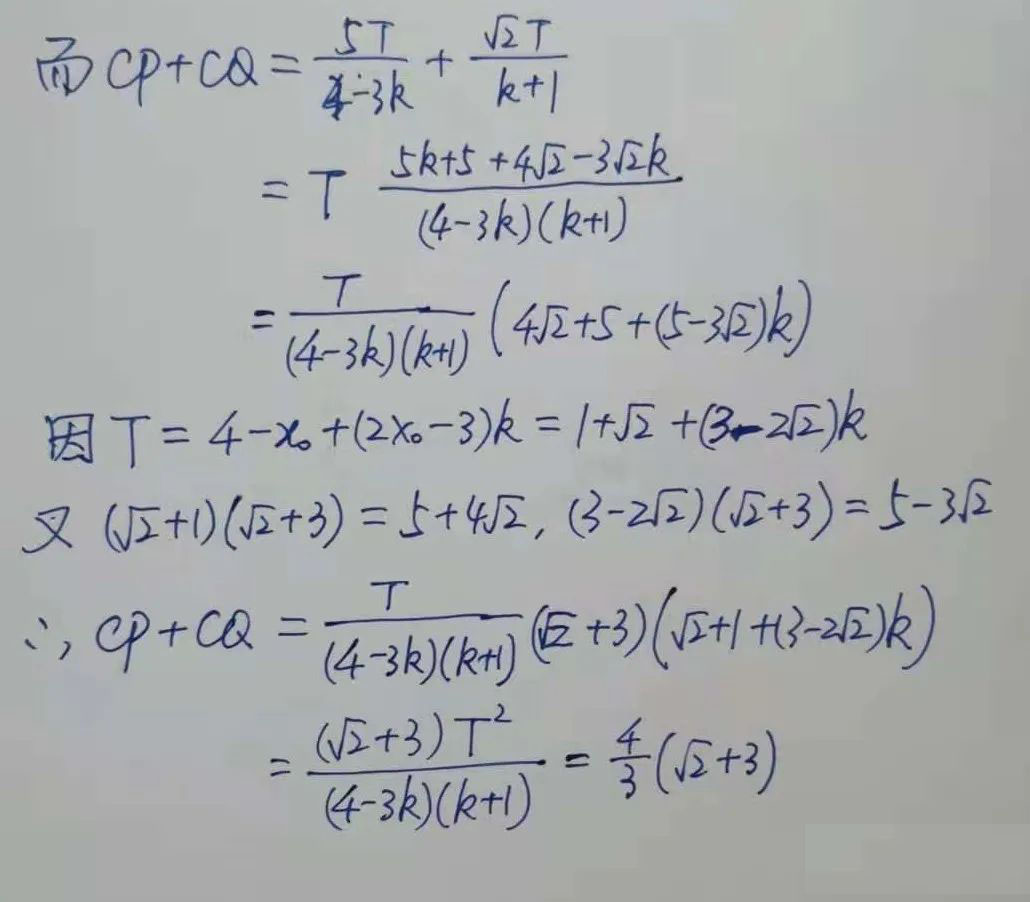 而 CP+CQ = \frac{5T}{4-3k} + \frac{√2T}{k+1}
= T \frac{5k+5+4√2-3√2k}{(4-3k)(k+1)}
= \frac{T}{(4-3k)(k+1)} (4√2+5+(5-3√2)k)
因 T = 4-x₀+(2x₀-3)k = 1+√2+(3-2√2)k
又 (√2+1)(√2+3) = 5+4√2, (3-2√2)(√2+3) = 5-3√2
∴, CP+CQ = \frac{T}{(4-3k)(k+1)} (√2+3)(√2+1+(3-2√2)k)
= \frac{(√2+3)T²}{(4-3k)(k+1)} = \frac{4}{3}(√2+3)